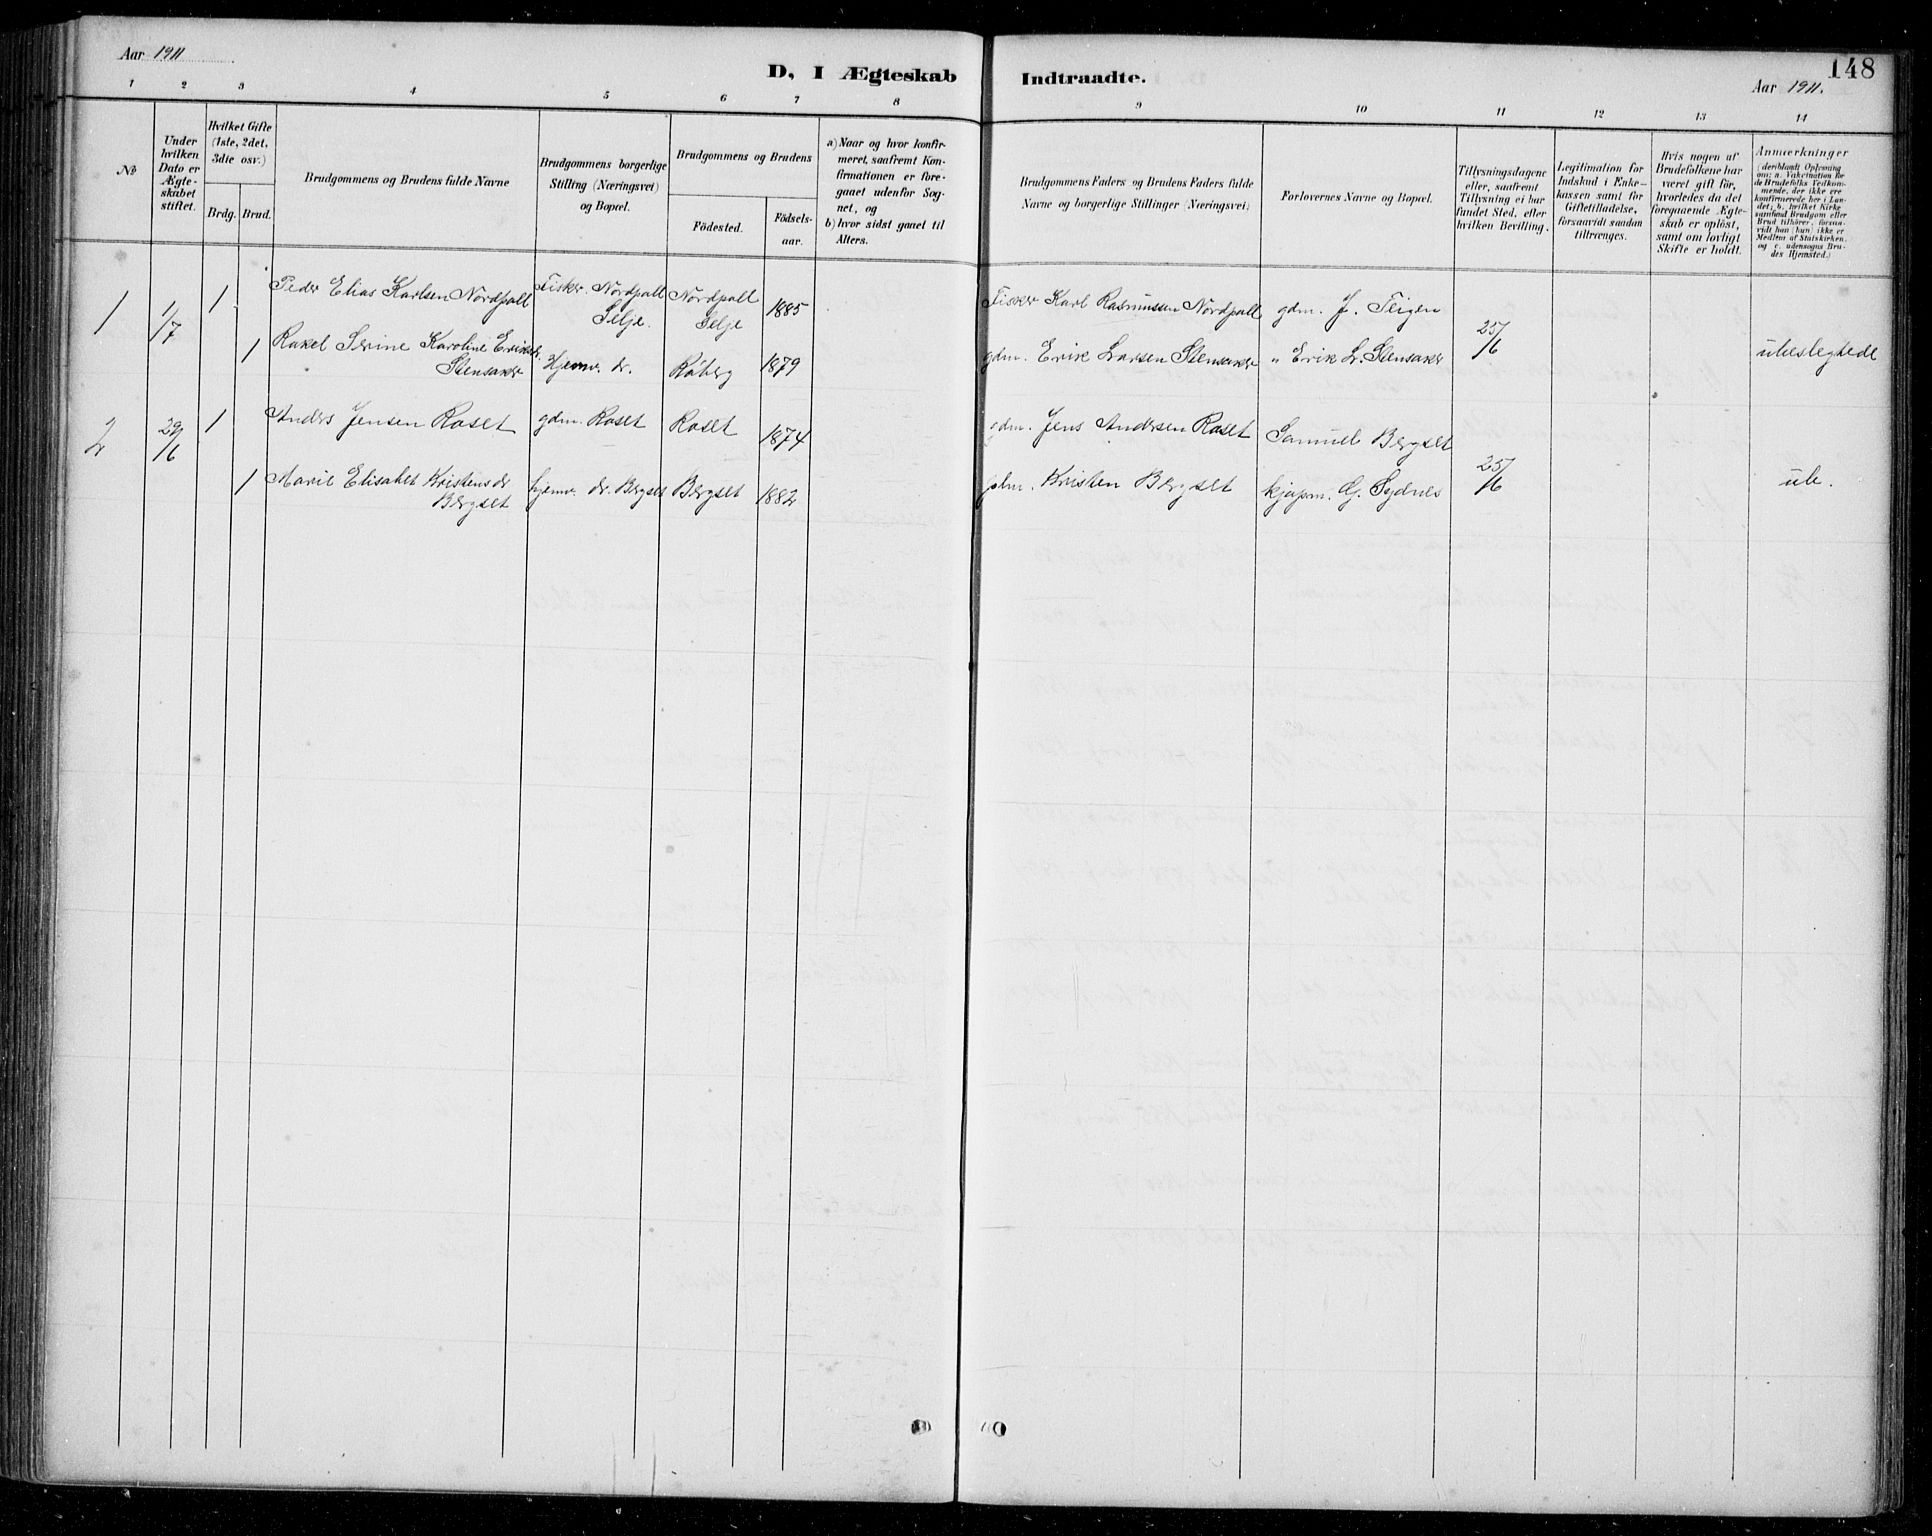 Aar 1911
D, I Ægteskab Indtraadte.
148
Aar 1911.
1 2 3 4 5 6 7 8 9 10 11 12 13 14
No
Under hvilken Dato er Ægteskabet stiftet.
Hvilket Gifte (1ste, 2det, 3die osv.)
Brdg. Brud.
Brudgommens og Brudens fulde Navne
Brudgommens borgerlige Stilling (Næringsvei) og Bopæl.
Brudgommens og Brudens
Födested.
Födselsaar.
a) Naar og hvor konfirmeret, saafremt Konfirmationen er foregaaet udenfor Sognet, og
b) hvor sidst gaaet til Alters.
Brudgommens Faders og Brudens Faders fulde Navne og borgerlige Stillinger (Næringsvei)
Forlovernes Navne og Bopæl.
Tillysningsdagene eller, saafremt Tillysning ei har fundet Sted, efter hvilken Bevilling.
Legitimation for Indskud i Enkekassen samt for Giftetilladelse, forsaavidt saadan tiltrænges.
Hvis nogen af Brudefolkene har været gift för, hvorledes da det foregaaende Ægteskab er oplöst, samt om lovligt Skifte er holdt.
Anmærkninger
(deriblandt Oplysning om: a. Vakcination for de Brudefolks Vedkommende, der ikke ere konfirmerede her i Landet; b. hvilket Kirkesamfund Brudgom eller Brud tilhörer, forsaavidt han (hun) ikke er Medlem af Statskirken, og c. udensogns Brudes Hjemsted.)
1 1/7 1 Peder Elias Karlsen Nordpoll Fisker. Nordpoll Selje. Nordpoll Selje 1885 Fisker Karl Rasmussen Nordpoll gdm. J. Teigen 25/6
1 Rakel Serine Karoline Eriksdr. Stensaker Hjemv. dr. Raberg 1879 gdm. Erik Larsen Stensaker " Erik L. Stensaker ubeslegtede
2 29/6 1 Anders Jensen Roset gdm. Roset Roset 1874 gdm. Jens Andersen Roset Samuel Bergset 25/6
1 Marie Elisabet Kristensdr Bergset hjemv. dr. Bergset Bergset 1882 Kristen Bergset kjøpm. G. Sydnes ub.